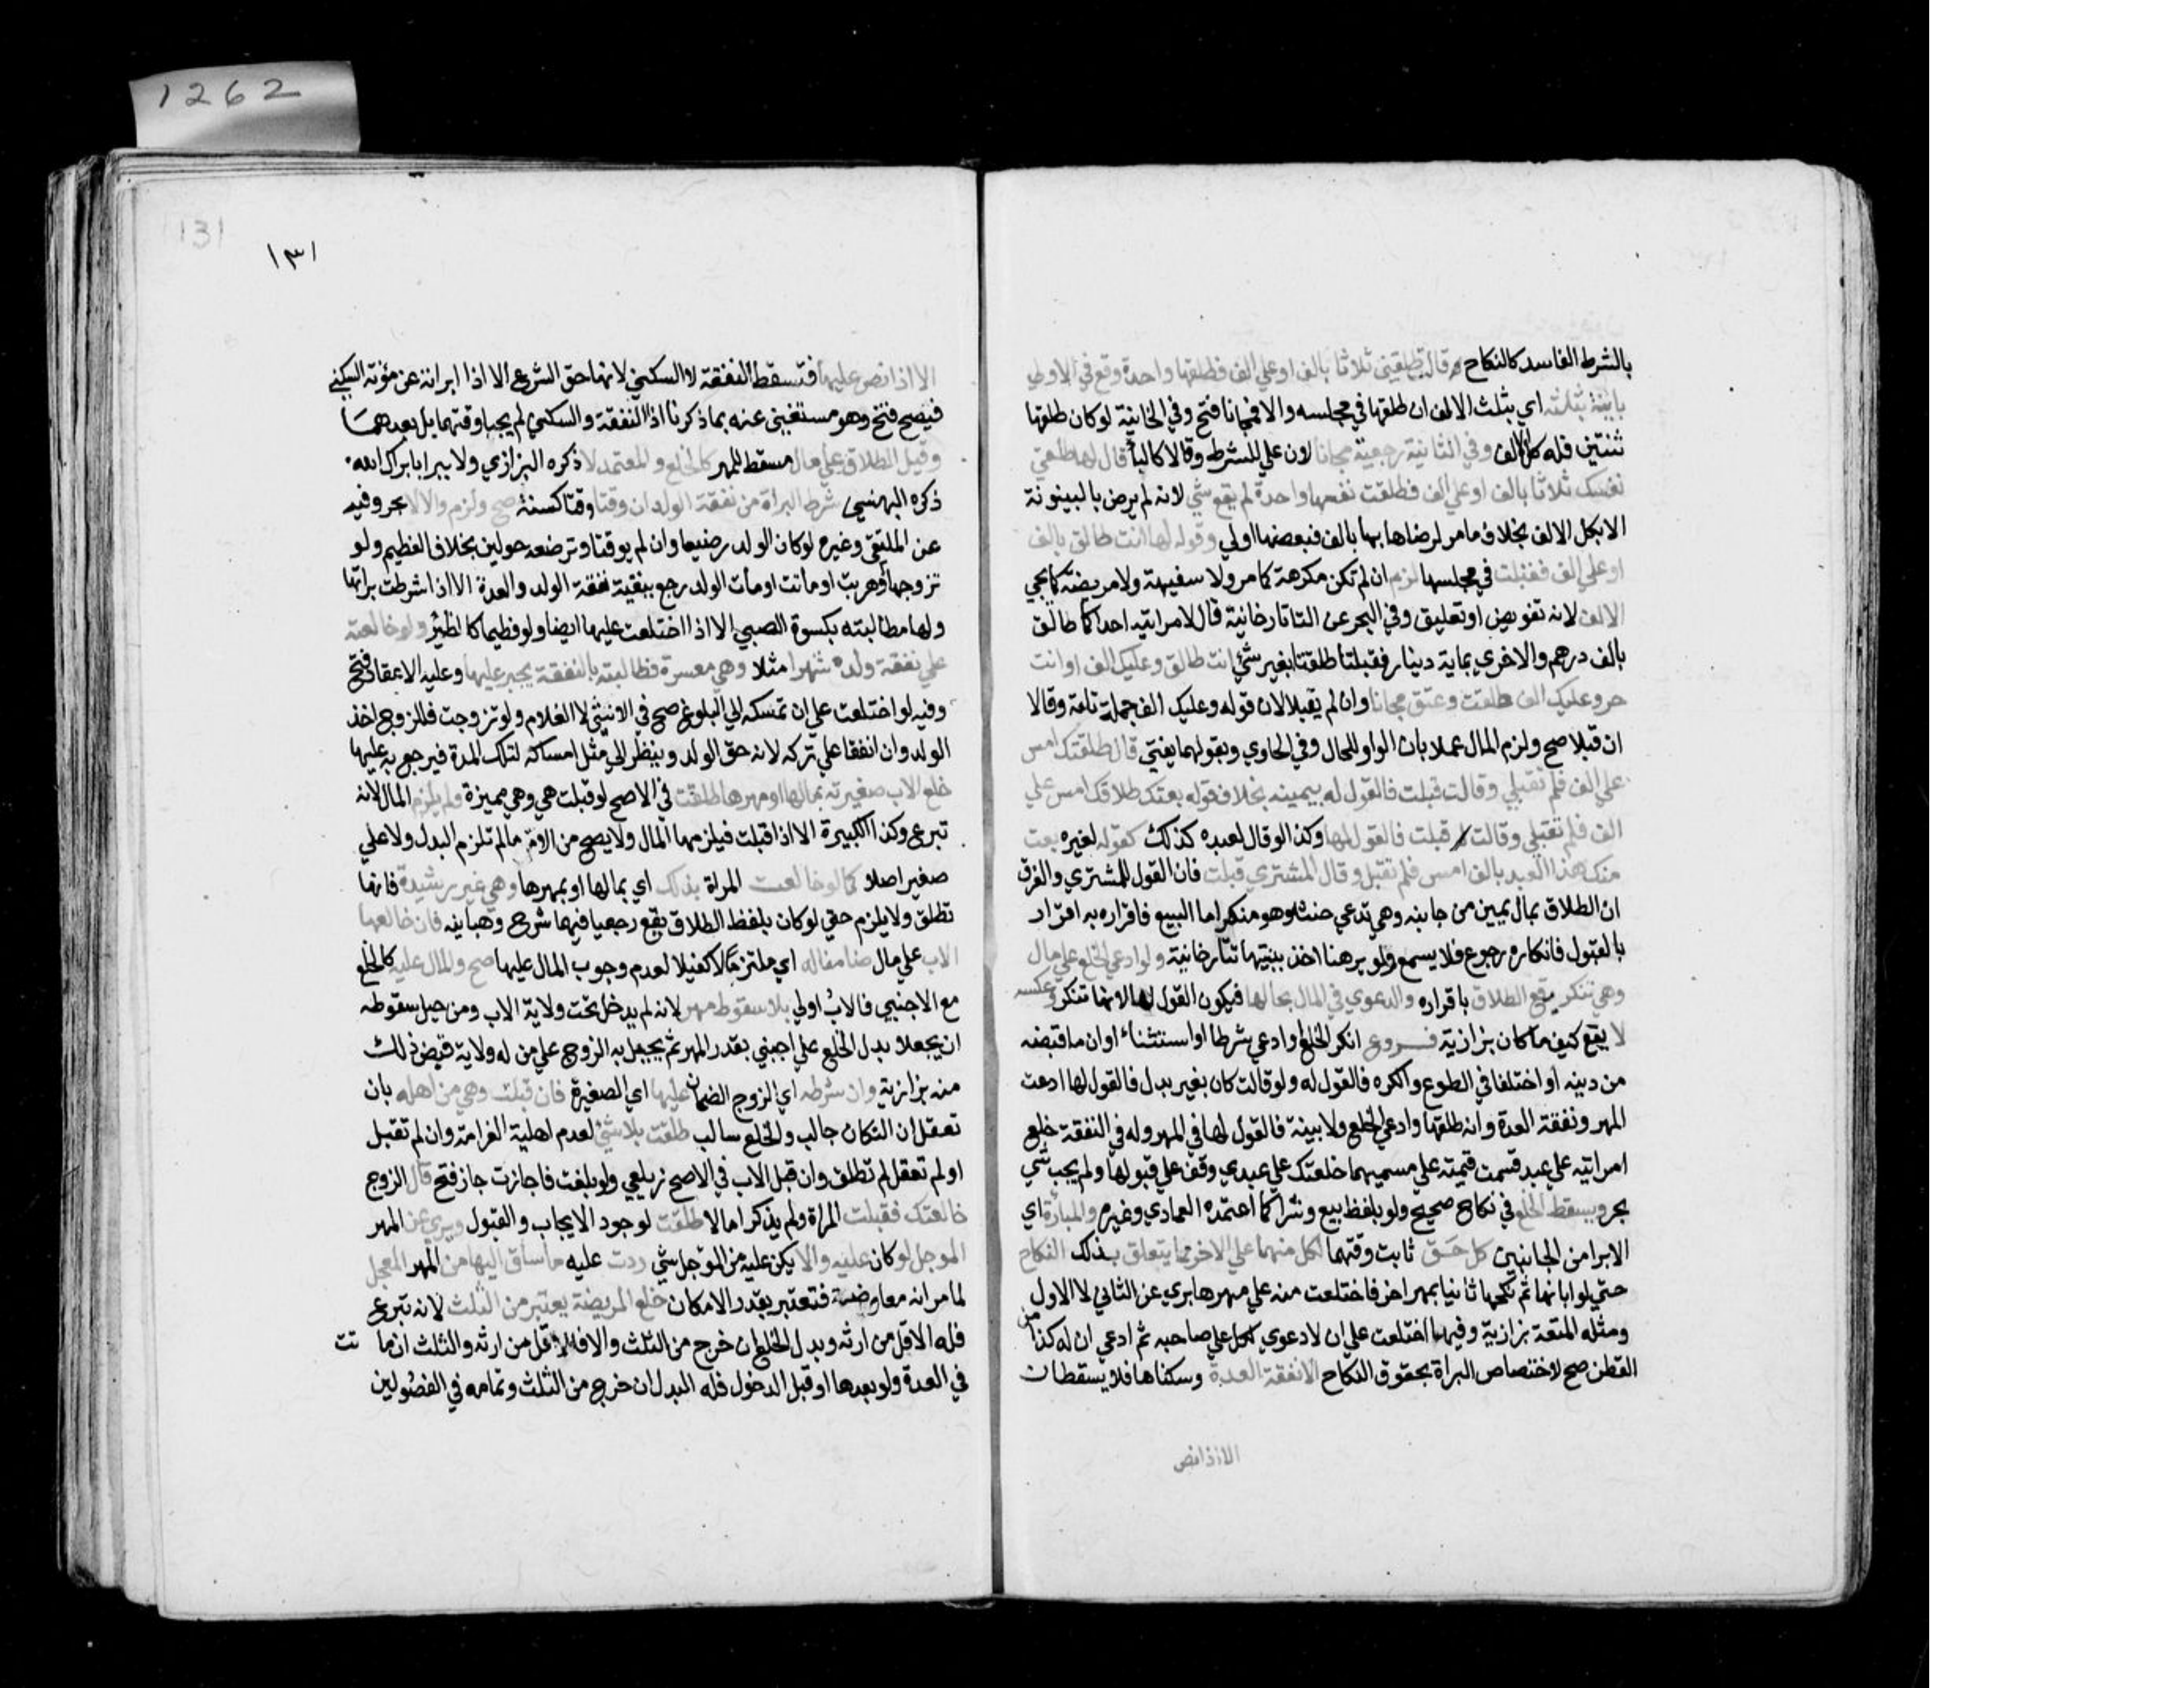 بالشرط الفاسد كالنكاح قال طلقيني ثلاثا بالف او على الف فطلقها واحدة وقع في الاولي
باينة بثلثه اي بثلث الالف ان طلقها في مجلسه والا فمجانا فتح وفي الخانية لو كان طلقها
ثنتين فله كل الالف وفي الثانية رجعية مجانا لان علي للشرط وقالا كالبا قال لها طلقي
نفسك ثلاثا بالف او علي الف فطلقت نفسها واحدة لم يقع شي لانه لم يرض بالبينونة
الا بكل الالف بخلاف ما مر لرضاها بها بالف فببعضها اولي وقوله لها انت طالق بالف
او علي الف فقبلت في مجلسها لزم ان لم تكن مكرهة كما مر ولا سفيهة ولا مريضة كما يجي
الالف لانه تفويض او تعليق وفي البحر عن التاتارخانية قال لامراتيه احداكما طالق
بالف درهم والاخري بماية دينار فقبلتا طلقتا بغير شي انت طالق وعليك الف او انت
حر وعليك الف طلقت وعتق مجانا وان لم يقبلا لان قوله وعليك الف جملة تامة وقالا
ان قبلا صح ولزم المال عملا بان الواو للحال وفي الحاوي وبقولهما يفتي قال طلقتك امس
علي الف فلم تقبلي وقالت قبلت فالقول له بيمينه بخلاف قوله بعتك طلاقك امس علي
الف فلم تقبلي وقالت قبلت فالقول لها وكذا لو قال لعبده كذلك كقوله لغيره بعت
منك هذا العبد بالف امس فلم تقبل وقال المشتري قبلت فان القول للمشتري والفرق
ان الطلاق بمال يمين من جانبه وهي تدعي حنثه وهو منكر اما البيع فاقراره به اقرار
بالقبول فانكاره رجوع فلا يسمع ولو برهنا اخذ ببينتها تتارخانية ولو ادعي الخلع علي مال
وهي تنكر يقع الطلاق باقراره والدعوي في المال بحالها فيكون القول لها لانها تنكر وعكسه
لا يقع كيف ما كان بزازية فـــروع انكر الخلع او ادعي شرطا او استثناء او ان ما قبضه
من دينه او اختلفا في الطوع والكره فالقول له ولو قالت كان بغير بدل فالقول لها ادعت
المهر ونفقة العدة وانه طلقها وادعي الخلع ولا بينة فالقول لها في المهر وله في النفقة خلع
امراتيه علي عبد قسمت قيمته علي مسميهما خلعتك علي عبدي وقف علي قبولها ولم يجب شي
بحر ويسقط الخلع في نكاح صحيح ولو بلفظ بيع وشرا كما اعتمده العمادي وغيره والمبارأة اي
الابرا من الجانبين كل حـق ثابت وقتهما لكل منهما علي الاخر مما يتعلق بذلك النكاح
حتي لو ابانها ثم نكحها ثانيا بمهر اخر فاختلعت منه علي مهرها بري عن الثاني لا الاول
ومثله المتعة بزازية وفيها اختلعت علي ان لا دعوي لكل علي صاحبه ثم ادعي ان له كذا من
القطن صح لاختصاص البراة بحقوق النكاح الا نفقة العدة وسكناها فلا يسقطان
الا اذا نص
1262
131
١٣١
الا اذا نص عليها فتسقط النفقة لا السكني لانها حق الشرع الا اذا ابراته عن مؤنة السكني
فيصح فتح وهو مستغني عنه بما ذكرنا اذ النفقة والسكني لم يجبا وقتهما بل بعدهما
وقيل الطلاق علي مال مسقط للمهر كالخلع والمعتمد لا ذكره البزازي ولا يبرا بابراك الله
ذكره البهنسي شرط البراة من نفقة الولد ان وقتا وقتا كسنة صح ولزم والا لا بحر وفيه
عن الملتقي وغيره لو كان الولد رضيعا وان لم يوقتا وترضعه حولين بخلاف الفطيم ولو
تزوجها او هربت او ماتت او مات الولد رجع ببقية نفقة الولد والعدة الا اذا شرطت براتها
ولها مطالبته بكسوة الصبي الا اذا اختلعت عليها ايضا ولو فطيما كالظئر ولو خالعته
علي نفقة ولده شهرا مثلا وهي معسرة فطالبته بالنفقة يجبر عليها وعليه الاعتماد فتح
وفيه لو اختلعت علي ان تمسكه الي البلوغ صح في الانثي لا الغلام ولو تزوجت فللزوج اخذ
الولد وان اتفقا علي تركه لانه حق الولد وينظر الي مثل امساكه لتلك المدة فيرجع به عليها
خلع الاب صغيرته بمالها او مهرها طلقت في الاصح لو قبلت هي وهي مميزة ولم يلزم المال لانه
تبرع وكذا الكبيرة الا اذا قبلت فيلزمها المال ولا يصح من الام ما لم تلزم البدل ولا علي
صغير اصلا كما لو خالعت المراة بذلك اي بمالها او بمهرها وهي غير رشيدة فانها
تطلق ولا يلزم حتي لو كان بلفظ الطلاق يقع رجعيا فيهما شرح وهبانيه فان خالعها
الاب علي مال ضامنا له اي ملتزما لا كفيلا لعدم وجوب المال عليها صح والمال عليه كالخلع
مع الاجنبي فالاب اولي بلا سقوط مهر لانه لم يدخل تحت ولاية الاب ومن حيل سقوطه
ان يجعلا بدل الخلع علي اجنبي بقدر المهر ثم يحيل به الزوج علي من له ولاية قبض ذلك
منه بزازية وان شرطه اي الزوج الضمان عليها اي الصغيرة فان قبلت وهي من اهله بان
تعقل ان النكاح جالب والخلع سالب طلقت بلا شي لعدم اهلية الغرامة وان لم تقبل
او لم تعقل لم تطلق وان قبل الاب في الاصح زيلعي ولو بلغت فاجازت جاز فتح قال الزوج
خالعتك فقبلت المراة ولم يذكرا مالا طلقت لوجود الايجاب والقبول وبري عن المهر
الموجل لو كان عليه والا يكن عليه من الموجل شي ردت عليه ما ساق اليها من المهر المعجل
لما مر انه معاوضة فتعتبر بقدر الامكان خلع المريضة يعتبر من الثلث لانه تبرع
فله الاقل من ارثه وبدل الخلع ان خرج من الثلث والا فالاقل من ارثه والثلث ان ما تت
في العدة ولو بعدها او قبل الدخول فله البدل ان خرج من الثلث وتمامه في الفصولين